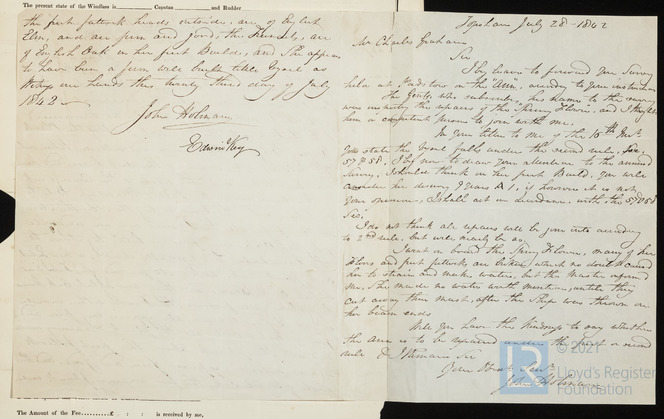 The present state of the Windlass is____ Capstan ____ and Rudder
the first futtock heads outside, are of English
Elm, and are firm and good, the Funnels, are
of English Oak in her first Builds, and She appears
to have been a firm well built little Vessel as
Witness our hands this twenty third day of July
1842
John Holman
Edwin Key
Topsham July 28 - 1842
Mr Charles Graham
Sir
I beg leave to forward you Survey
held at Padstow on the "Ann", according to your instructions
the Gentn. who subscribes his name to the survey
was inspecting the repairs of the "Spring Flower", and I thought
him a competent person to join with me.
In your letter to me of the 15th Inst.
you state the Vessel falls under the second rule, Sec.
57 & 58. I beg now to draw your attention to the annexed
Survey, I should think on her first Build, you will
consider her deserving 9 Years A 1, if however it is not
your opinions, I shall act in accordance with the 57 & 58
Sec.
I do not think all repairs will be gone into according
to 2nd rule, but will nearly be so.
I went on board the Spring Flower, many of her
floors and first futtocks are broken, which no doubt caused
her to strain and make water, but the Master informed
me, She made no water worth mention, until they
cut away their mast, after the Ship was thrown on
her beam ends
Will you have the kindness to say whether
the Ann is to be repaired under the first or second
rule & I Remain Sir
Your Obedt Servt
John Holman
© 2021
LR
Lloyd's Register
Foundation
The Amount of the Fee..........£ : : is received by me,